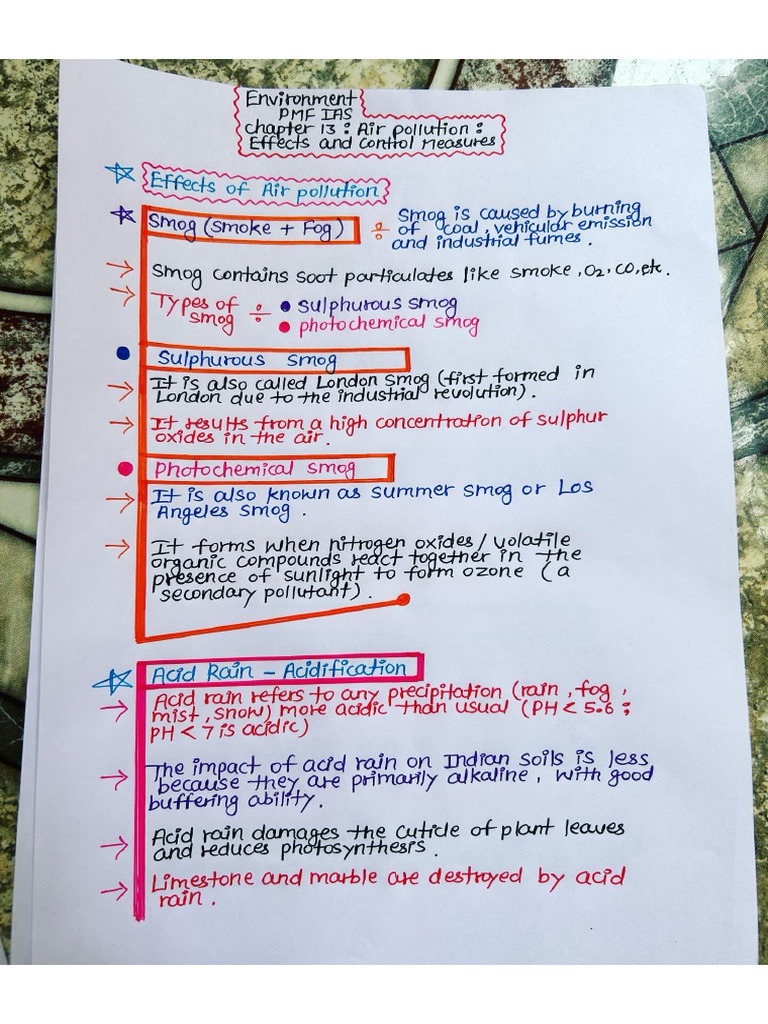 Environment
PMF IAS
Chapter 13 : Air pollution :
Effects and Control Measures
Effects of Air pollution
Smog (Smoke + Fog) ÷ Smog is caused by burning
of coal, vehicular emission
and industrial fumes.
Smog contains soot particulates like smoke, O2, CO, etc.
Types of smog ÷ • sulphurous smog
• photochemical smog
Sulphurous smog
It is also called London smog (first formed in
London due to the industrial revolution).
It results from a high concentration of sulphur
oxides in the air.
Photochemical smog
It is also known as summer smog or Los
Angeles smog.
It forms when nitrogen oxides / volatile
organic compounds react together in the
presence of sunlight to form ozone (a
secondary pollutant).
Acid Rain - Acidification
Acid rain refers to any precipitation (rain, fog,
mist, snow) more acidic than usual (PH < 5.6 ;
PH < 7 is acidic)
The impact of acid rain on Indian soils is less
because they are primarily alkaline, with good
buffering ability.
Acid rain damages the cuticle of plant leaves
and reduces photosynthesis.
Limestone and marble are destroyed by acid
rain.